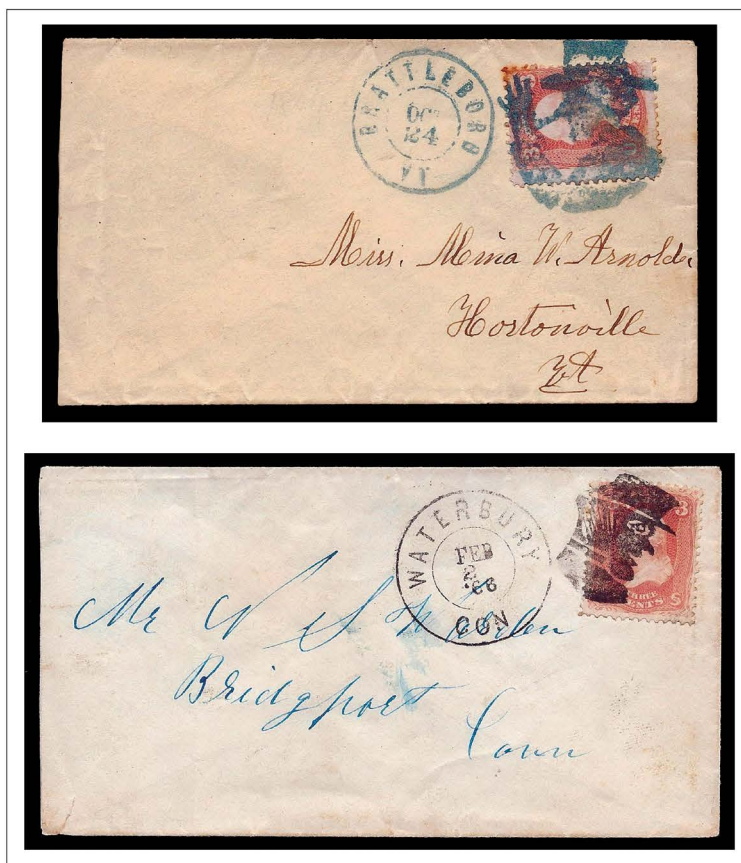 BRATTLEBORO
OCT
24
Miss. Mina W. Arnold
Hortonville
Vt
WATERBURY
FEB
2
'66
CON
3
THREE
CENTS
Mr N S
Bridgport
Conn